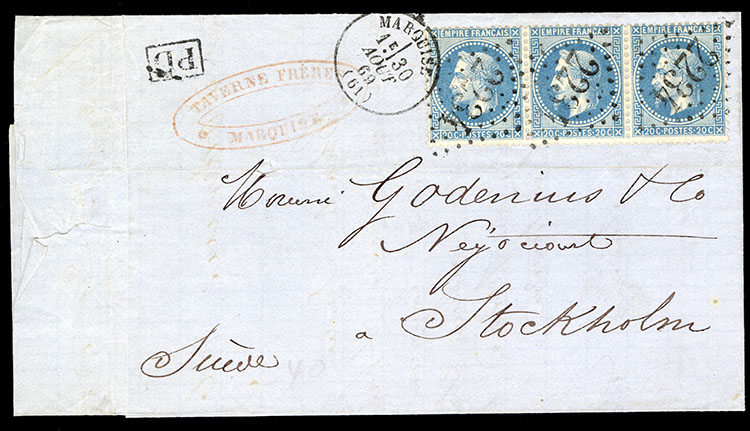 PD
TAVERNE FRÈRE
MARQUISE
MARQUISE
1E 30
AOUT
69
(61)
EMPIRE FRANÇAIS
20C-POSTES-20C
EMPIRE FRANÇAIS
20C-POSTES-20C
EMPIRE FRANÇAIS
20C-POSTES-20C
2234
2234
2234
Godenius & Co
Négociant
a Stockholm
Suède